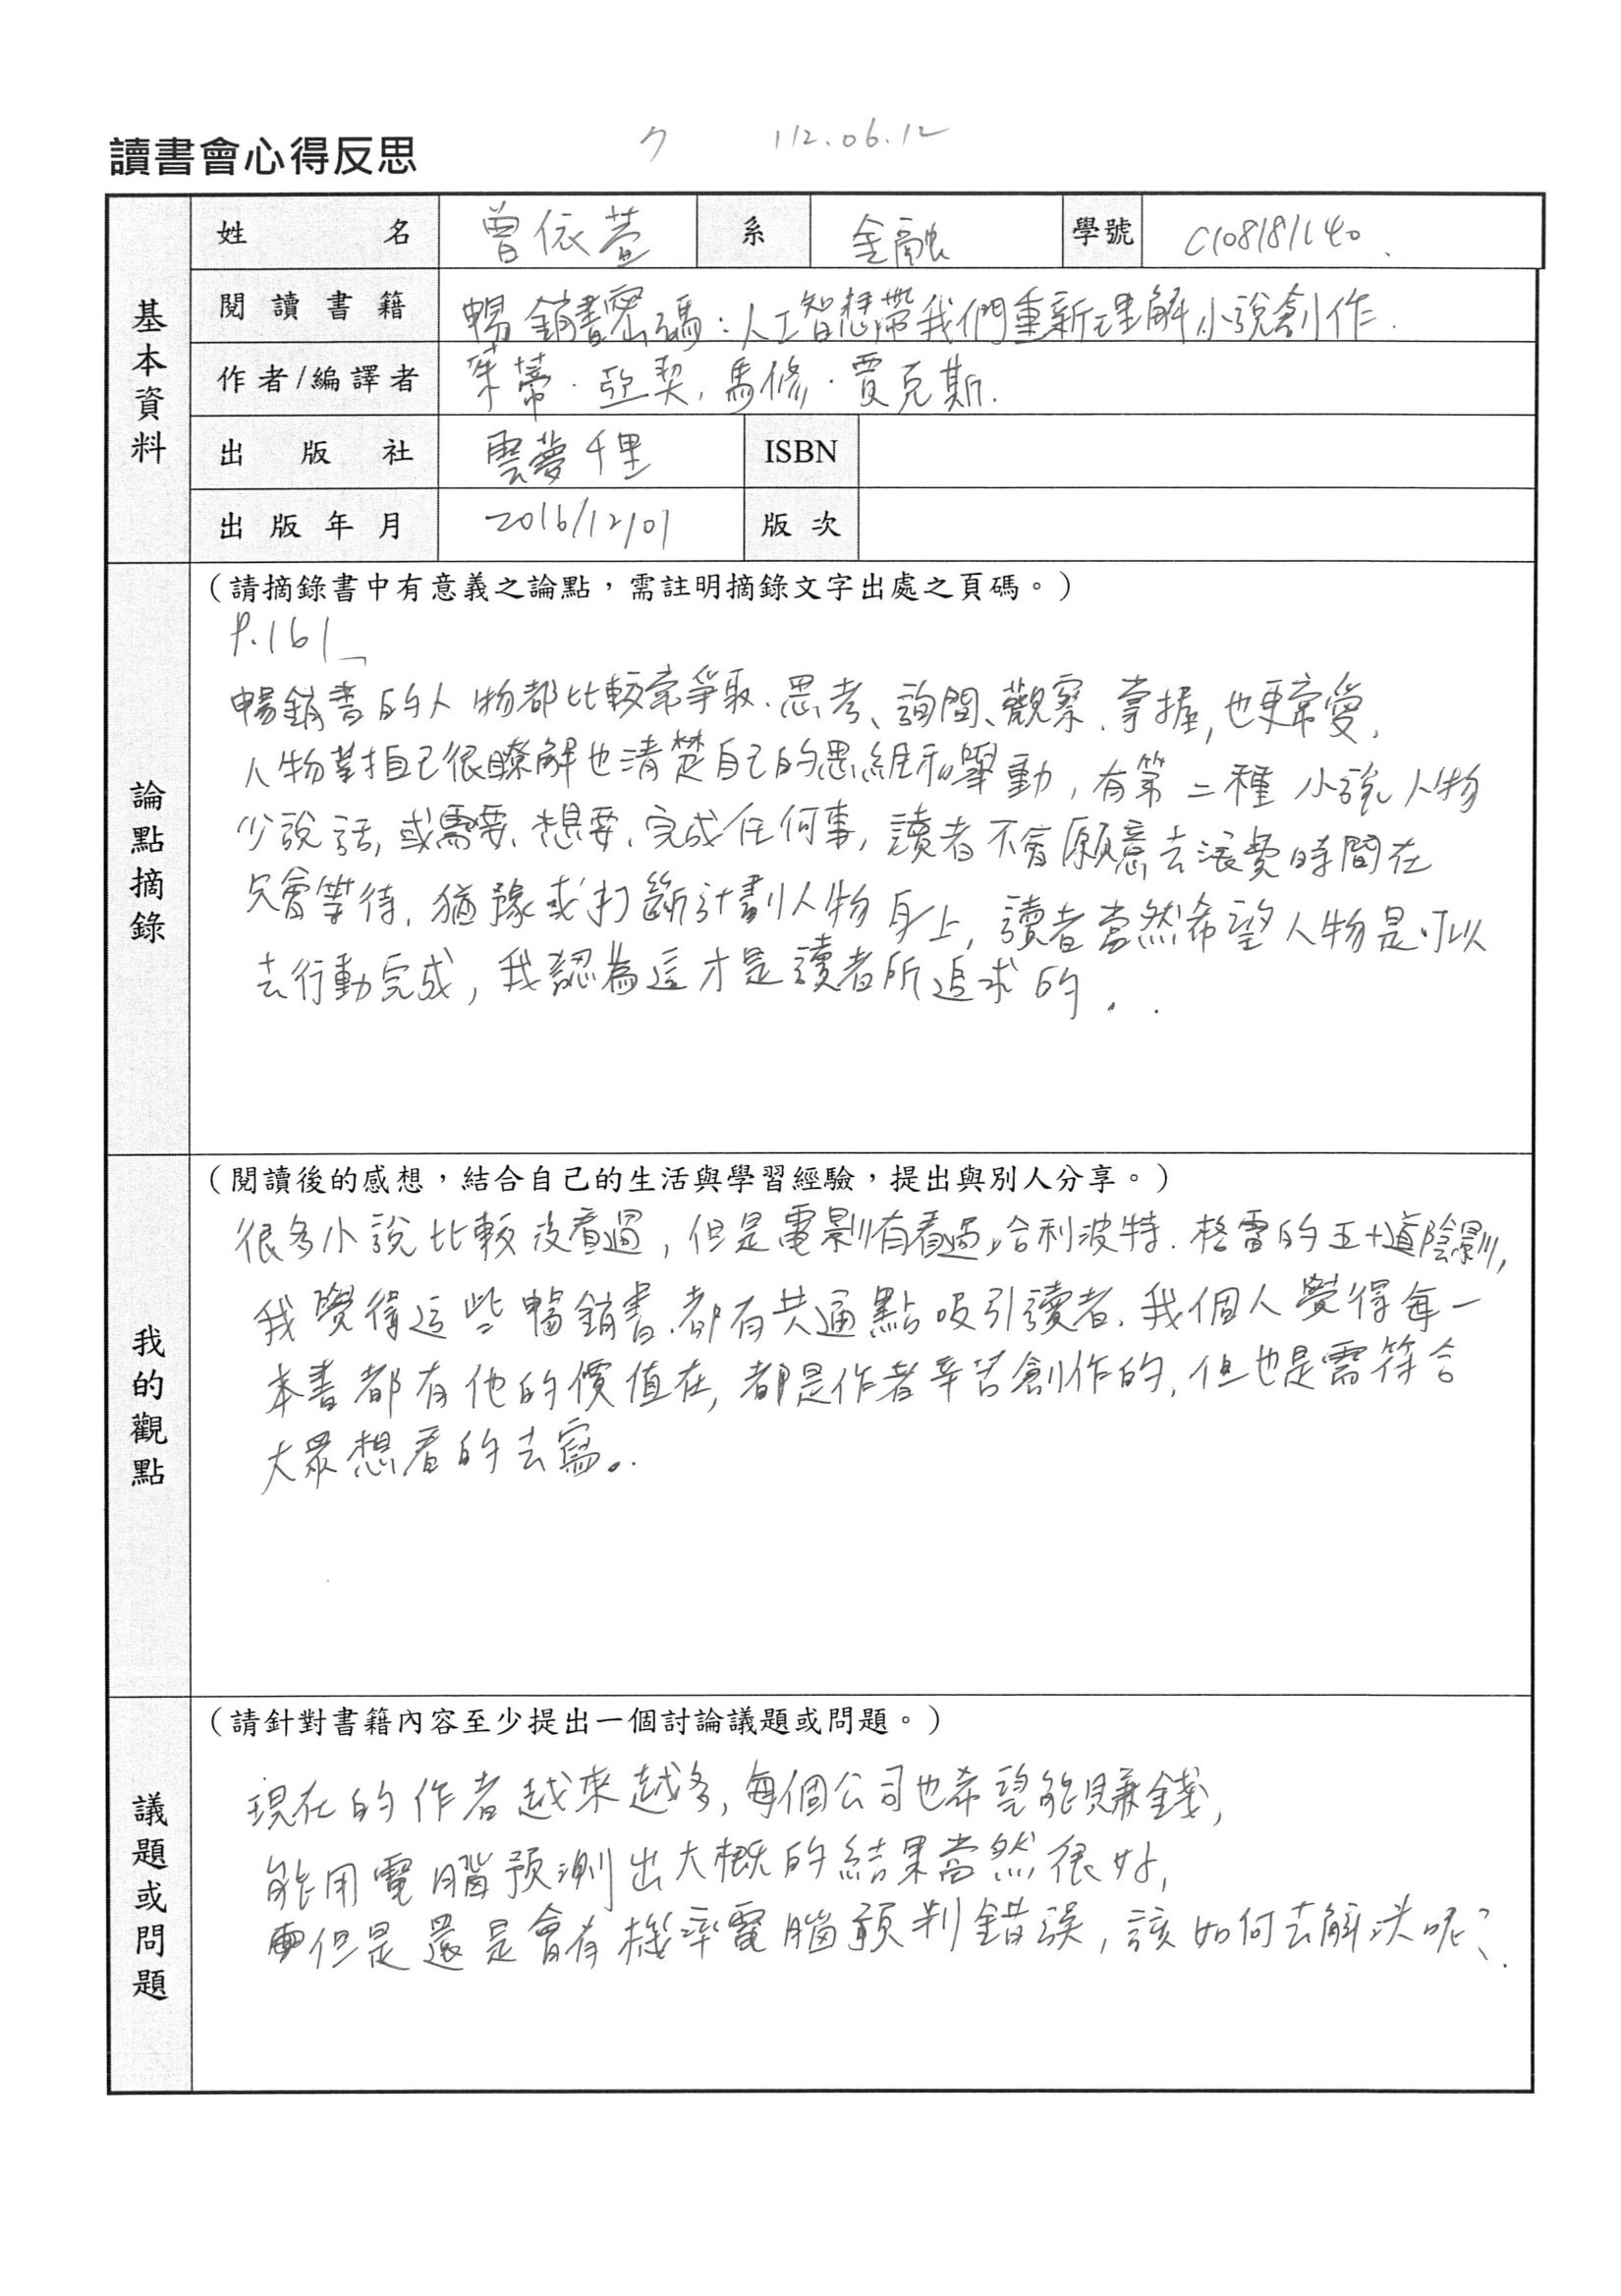 讀書會心得反思 112.06.12
基本資料
姓名 曾依萱 系 金融 學號 C108181140
閱讀書籍 暢銷書密碼:人工智慧帶我們重新理解小說創作.
作者/編譯者 茱蒂.亞契,馬修.賈克斯.
出版社 雲夢千里 ISBN
出版年月 2016/12/01 版次
論點摘錄
(請摘錄書中有意義之論點,需註明摘錄文字出處之頁碼。)
P.161
暢銷書的人物都比較常爭取、思考、詢問、觀察、掌握,也更常愛,
人物對自己很瞭解也清楚自己的思維和舉動,有第二種小說人物
少說話,或需要、想要、完成任何事,讀者不會願意去浪費時間在
只會等待、猶豫或打斷計劃人物身上,讀者當然希望人物是可以
去行動完成,我認為這才是讀者所追求的。
我的觀點
(閱讀後的感想,結合自己的生活與學習經驗,提出與別人分享。)
很多小說比較沒看過,但是電影有看過,哈利波特.格雷的五十道陰影,
我覺得這些暢銷書.都有共通點吸引讀者.我個人覺得每一
本書都有他的價值在,都是作者辛苦創作的,但也是需符合
大眾想看的去寫。
議題或問題
(請針對書籍內容至少提出一個討論議題或問題。)
現在的作者越來越多,每個公司也希望能賺錢,
能用電腦預測出大概的結果當然很好,
但是還是會有機率電腦預判錯誤,該如何去解決呢?